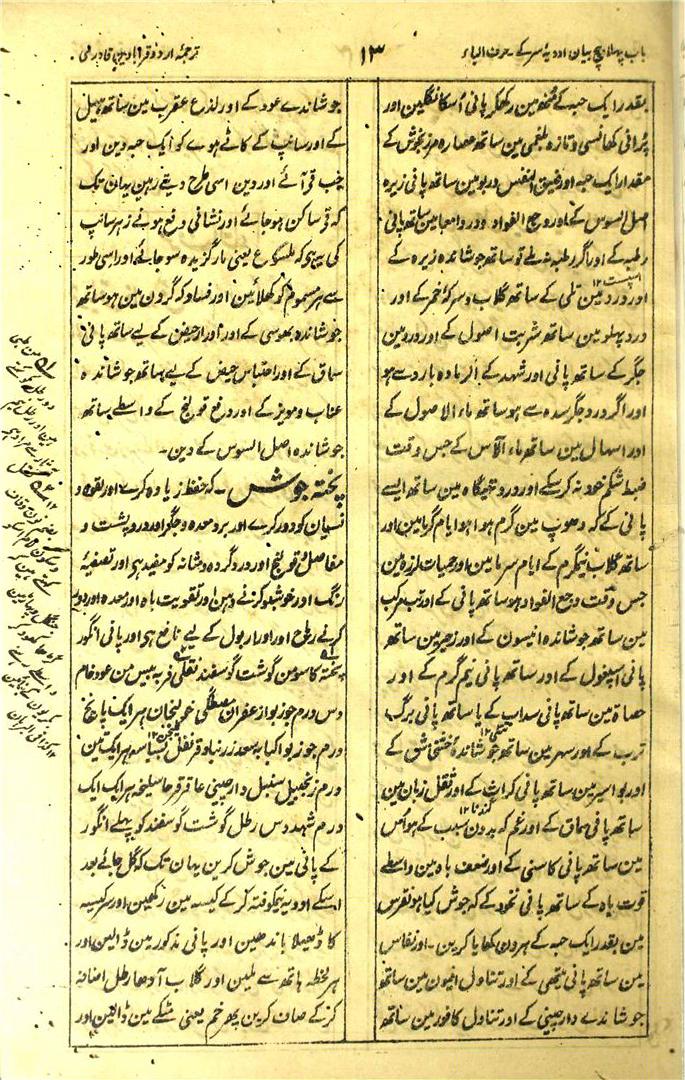 باب پہلا بیچ بیان ادویۂ سر کے ۔ حرف الباء
۱۳
ترجمۂ اردو قرابادین قادری
بقدر ایک حبہ کے منھ مین رکھکر پانی اُسکا نگلین اور
پُرانی کھانسی و تازہ بلغمی مین ساتھ عصارہ مرزنجوش کے
مقدار ایک حبہ اور ضیق النفس و ربو مین ساتھ پانی زیرہ
اصل السوس کے اور وجع الفواد و درد امعا مین ساتھ پانی
رطبہ کے اور اگر رطبہ نہ ملے تو ساتھ جوشاندہ زیرہ کے
اسپست ۱۲
اور درد مین تلی کے ساتھ گلاب و سرکۂ خمر کے اور
درد پہلو مین ساتھ شربت اصول کے اور درد مین
جگر کے ساتھ پانی اور شہد کے اگر مادہ بارد سے ہو
اور اگر درد جگر سدہ سے ہو ساتھ ماء الاصول کے
اور اسہال مین ساتھ ماء الآس کے جس وقت
ضبط شکم خود نہ کر سکے اور درد تہیگاہ مین ساتھ ایسے
پانی کے کہ دھوپ مین گرم ہوا ہو ایام گرما مین اور
ساتھ گلاب نیمگرم کے ایام سرما مین اور حمیات لرزہ مین
جس وقت وجع الفواد ہو ساتھ پانی کے اور تپ مرکب
مین ساتھ جوشاندہ انیسون کے اور زحیر مین ساتھ
پانی اسپغول کے اور ساتھ پانی نیم گرم کے اور
حصاۃ مین ساتھ پانی سداب کے یا ساتھ پانی برگ
ترب کے اور سہر مین ساتھ جوشاندہ خشخاش کے
اور بواسیر مین ساتھ پانی کراث کے اور ثقل زبان مین
گندنا ۱۲
ساتھ پانی سماق کے اور غم کہ بدون سبب کے ہو اُس
مین ساتھ پانی کاسنی کے اور ضعف باہ مین واسطے
قوت باہ کے ساتھ پانی نخود کے کہ جوش کیا ہو نقرس
مین بقدر ایک حبہ کے ہر دن کھایا کرین ۔ اور نفاس
مین ساتھ پانی میتھی کے اور تناول افیون مین ساتھ
جوشاندے دارچینی کے اور تناول کافور مین ساتھ
جوشاندے عود کے اور لدغ عقرب مین ساتھ بیل
کے اور سانپ کے کاٹے ہوے کو ایک حبہ دین اور
جب قی آئے اور دین اسی طرح دیتے رہین یہان تک
کہ قی ساکن ہو جائے اور نشانی دفع ہونے زہر سانپ
کی یہ ہی کہ ملسوع یعنی مار گزیدہ سو جائے اور اسی طور
سے ہر مسموم کو کھلائین اور فساد کہ گردن مین ہو ساتھ
جوشاندہ بھوسی کے اور ادرار حیض کے لیے ساتھ پانی
سماق کے اور احتباس حیض کے لیے ساتھ جوشاندہ
عناب و مویز کے اور دفع قولنج کے واسطے ساتھ
جوشاندہ اصل السوس کے دین ۔
پختہ جوش ۔ کہ حفظ زیادہ کرے اور لقوہ و
نسیان کو دور کرے اور برد معدہ و جگر اور درد پشت و
مفاصل و قولنج اور درد گردہ و مثانہ کو مفید ہی اور تصفیۂ
رنگ اور خوشبو کرنے دہن اور تقویت باہ اور معدہ اور دور
کرنے ریاح اور ادرار بول کے لیے نافع ہی اور پانی انگور
پختہ کا سو من گوشت گوسفند ثقلی فربہ بیس من عود خام
دس درم جوز بوا زعفران مصطگی خولنجان ہر ایک پانچ
درم جوز بوا کبابہ سعد زرنباد قرنفل بسباسہ ہر ایک تین
درم زنجبیل سنبل دارچینی عاقرقرحا سلیخہ ہر ایک ایک
درم شہد دس رطل گوشت گوسفند کو پہلے انگور
کے پانی مین جوش کرین یہان تک کہ گل جائے بعد
اسکے ادویہ نیمکوفتہ کر کے کیسہ مین رکھین اور سر کیسہ
کا ڈھیلا باندھین اور پانی مذکور مین ڈالین اور
ہر لحظہ ہاتھ سے ملین اور گلاب آدھا رطل اضافہ
کر کے صاف کرین پھر خم یعنی مٹکے مین ڈالین اور